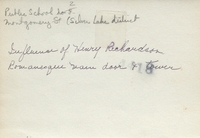 2
Public School No 5
Montgomery St (Silver Lake district
Influence of Henry Richardson
Romanesque main door & Tower